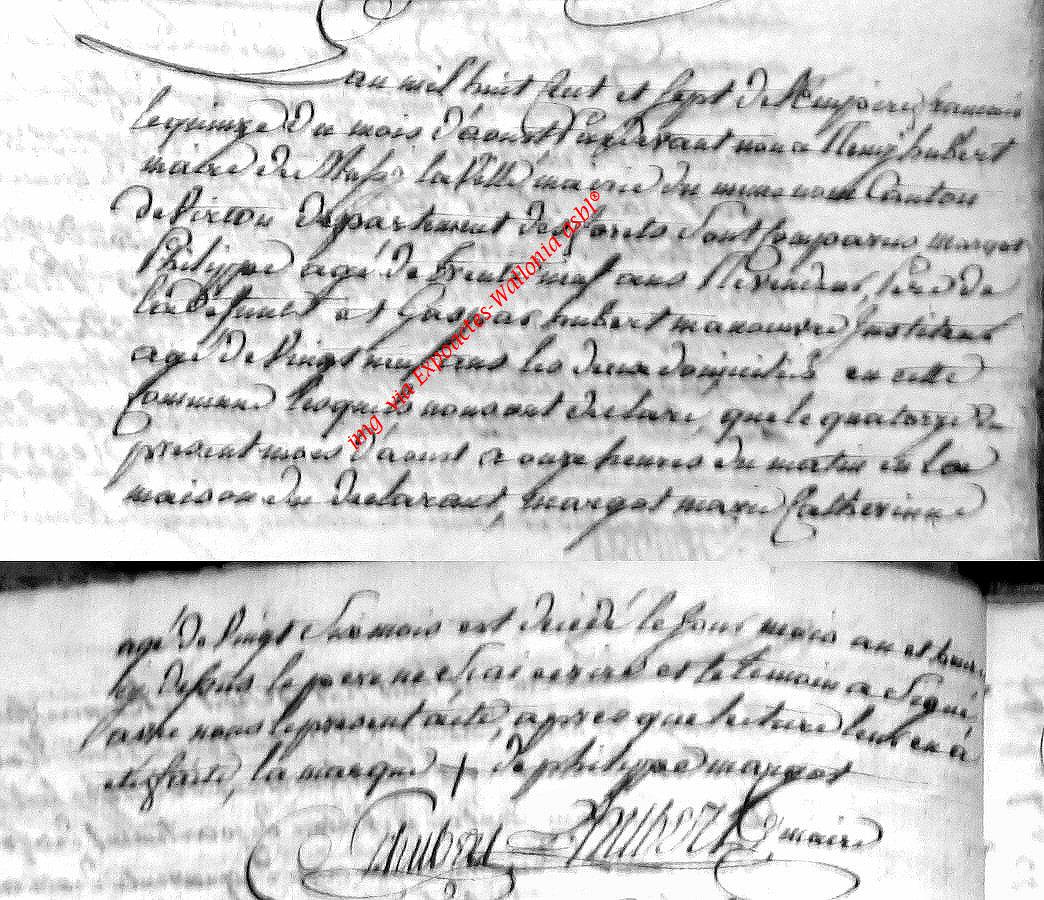 L'an mil huit cent et sept de l'Empire francais
le quinze du mois d'aoust Pardevant nous Remy hubert
maire de Mussy la Ville mairie du meme nom Canton
de Virton departement des forets Sont Comparus margot
Philippe agé de trente neuf ans Revendeur, Pere de
la defunte et Gaspar hubert manouvre Instituteur
agé de Vingt neuf ans les deux domiciliés en cette
Commune lesquels nous ont declaré, que le quatorze du
present mois d'aoust a onze heures du matin en la
maison du declarant, margot marie Catherinne
agé de Vingt Six mois est decedé le Jour mois an et heure
cy dessus le pere ne Scai ecrire et le temoin a Signé
avec nous le present acte, apres que lecture leur en à
eté faite, la marque + de philippe margot
hubert R hubert maire
img via Expoactes-Wallonia asbl©